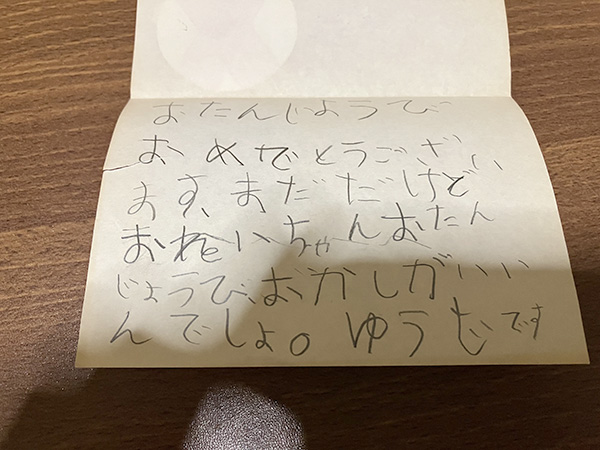 おたんじょうび
おめでとうござい
ます、まだだけど
おれいちゃんおたん
じょうび、おかしがいい
んでしょ。ゆうむです